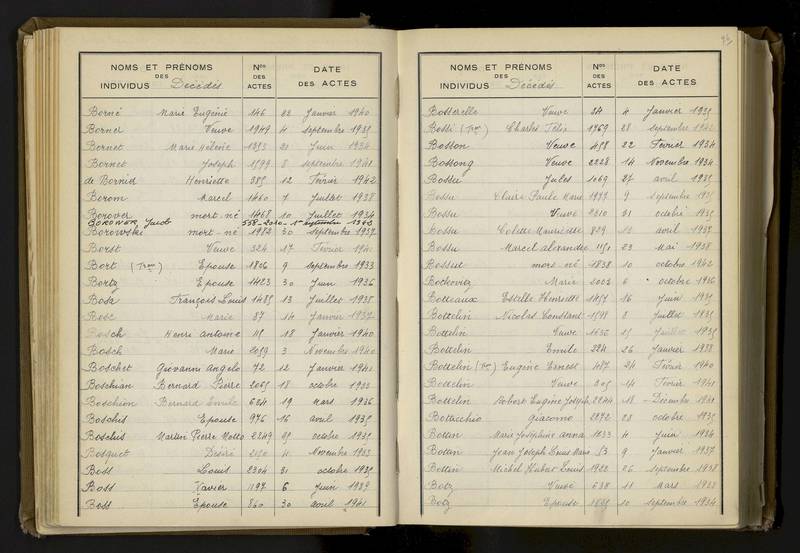 NOMS ET PRÉNOMS DES INDIVIDUS Décédés Nos DES ACTES DATE DES ACTES
Borné Marie Eugénie 146 22 Janvier 1940
Borner Veuve 1949 4 septembre 1939
Bornet Marie Hélène 21 Juin 1934
Bornet Joseph 1599 8 septembre 1941
de Bornid Henriette 385 12 Février 1942
Berom Marcel 1460 7 Juillet 1938
Borover mort-né 1468 10 Juillet 1934
BOROWER Jacob 558-2010 - 1er septembre 1943
Borowski mort-né 1982 30 septembre 1937
Borst Veuve 324 17 Février 1941
Bort Epouse 1806 9 septembre 1933
Bortz Epouse 1423 30 Juin 1936
Bosa François Louis 1485 13 Juillet 1935
Bosc Marie 37 14 Janvier 1937
Bosch Henri Antoine 115 18 Janvier 1940
Bosch Marie 2059 3 Novembre 1940
Boschet Giovanni Angelo 72 12 Janvier 1941
Boschian Bernard Pierre 2065 18 octobre 1933
Boschion Bernard Emile 624 19 Mars 1936
Boschis Epouse 976 16 avril 1935
Boschis Martin Pierre 2249 25 octobre 1935
Bosquet Désiré 2150 4 Novembre 1933
Boss Louis 2304 31 octobre 1935
Boss Xavier 1197 6 Juin 1939
Boss Epouse 860 30 avril 1941
96
NOMS ET PRÉNOMS DES INDIVIDUS Décédés Nos DES ACTES DATE DES ACTES
Bosserelle Veuve 24 4 Janvier 1935
Bossi Charles Félix 1969 28 septembre 1942
Bosson Veuve 458 22 Février 1934
Bossong Veuve 2228 14 Novembre 1934
Bossu Jules 1069 27 avril 1935
Bossu Claire Paule Marie 1977 9 septembre 1935
Bossu Veuve 2310 31 octobre 1935
Bossu Colette Mauricette 829 12 avril 1935
Bossu Marcel Alexandre 1151 23 Mai 1938
Bossut mort-né 1838 10 octobre 1942
Marie 2002 6 octobre 1936
Botteaux Estelle Henriette 1457 16 Juin 1935
Bottelin Nicolas Constant 1598 8 Juillet 1935
Bottelin Veuve 1636 15 Juillet 1935
Bottelin Emile 224 26 Janvier 1938
Bottelin Eugène Ernest 487 24 Février 1940
Bottelin Veuve 305 14 Février 1941
Bottelin Robert Eugène Joseph 2244 18 Décembre 1941
Botticchio Giacomo 2272 28 octobre 1935
Marie Joséphine Anna 1033 4 Juin 1934
Bottin Jean Joseph Louis Marc 53 9 Janvier 1937
Bottin Michel Hubert Louis 1922 26 septembre 1938
Botz Veuve 638 11 Mars 1938
Botz Epouse 10 septembre 1934